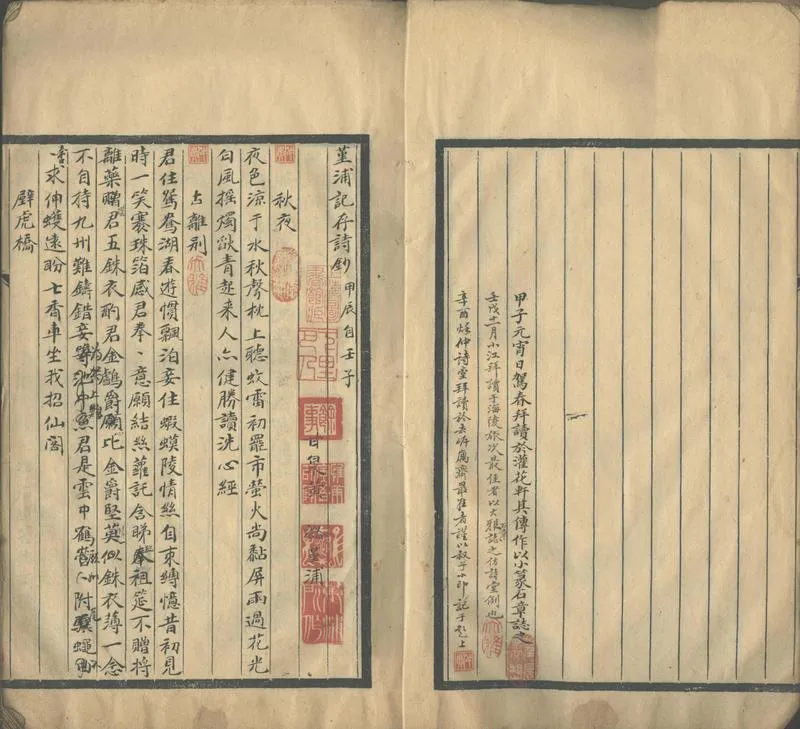 甲子元宵日駕春拜讀於灌花軒其傳作以小篆石章誌之
壬戌十一月小江拜讀于海陵旅次最佳者以大雅誌之仿詩堂例也
辛酉秋仲詩堂拜讀於 最佳者謹以叔子小印記于題上
堇浦記存詩鈔 甲辰自壬子
堇浦
秋夜
夜色涼于水秋聲枕上聽蚊雷初罷市螢火尚黏屏雨過花光
白風搖燭燄青起來人亦健勝讀洗心經
古離別
大雅
君住鴛鴦湖春遊慣飄泊妾住蝦蟆陵情絲自束縛憶昔初見
時一笑褰珠箔感君奉、意願結絲蘿託含睇 祖筵不贈將
離藥贈君五銖衣酌君金鶴爵願比金爵堅莫似銖衣薄一念
不自持九州難鑄錯妾 池中魚君是雲中鶴 附 蠅
求伸蠖遠盼七香車坐我招仙閣
壁虎橋